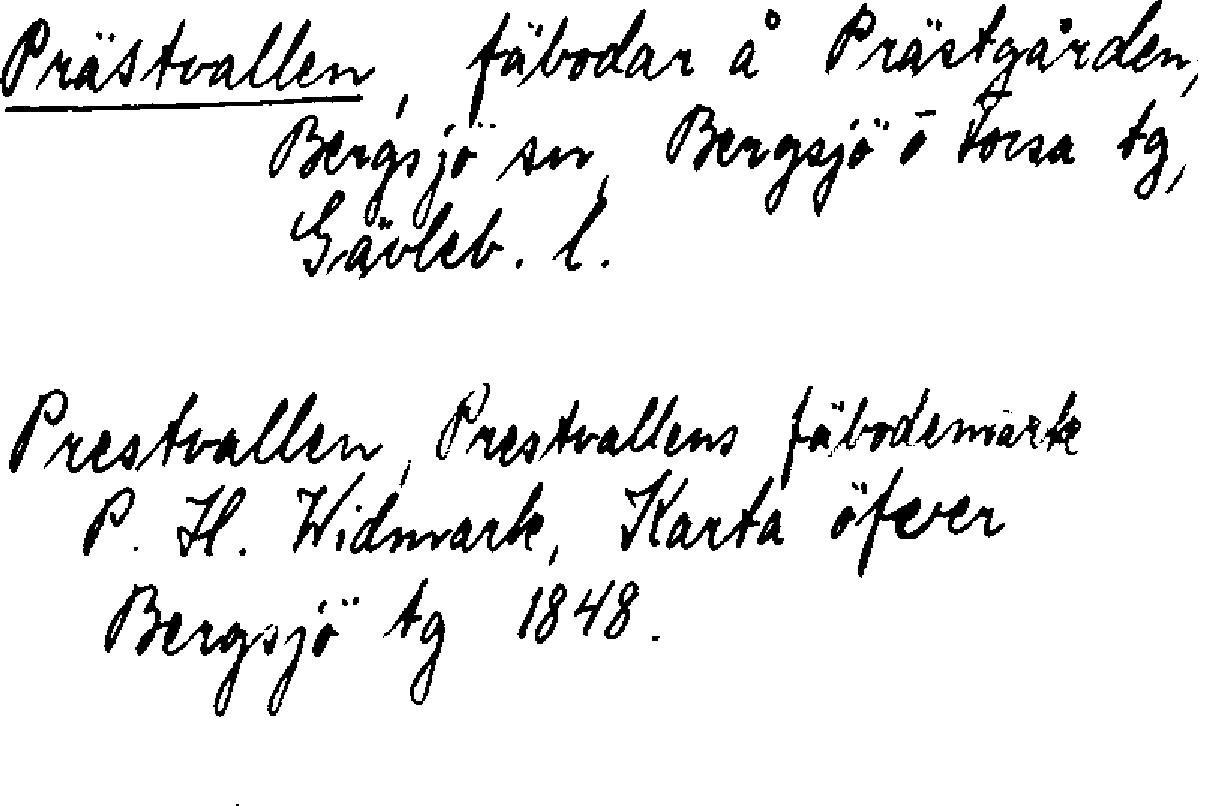 Prästvallen, fäbodar å Prästgården,
Bergsjö sn, Bergsjö o Forsa tg,
Gävleb. l.
Prestvallen, Prestvallens fäbodemark
P. H. Widmark, Karta öfver
Bergsjö tg 1848.